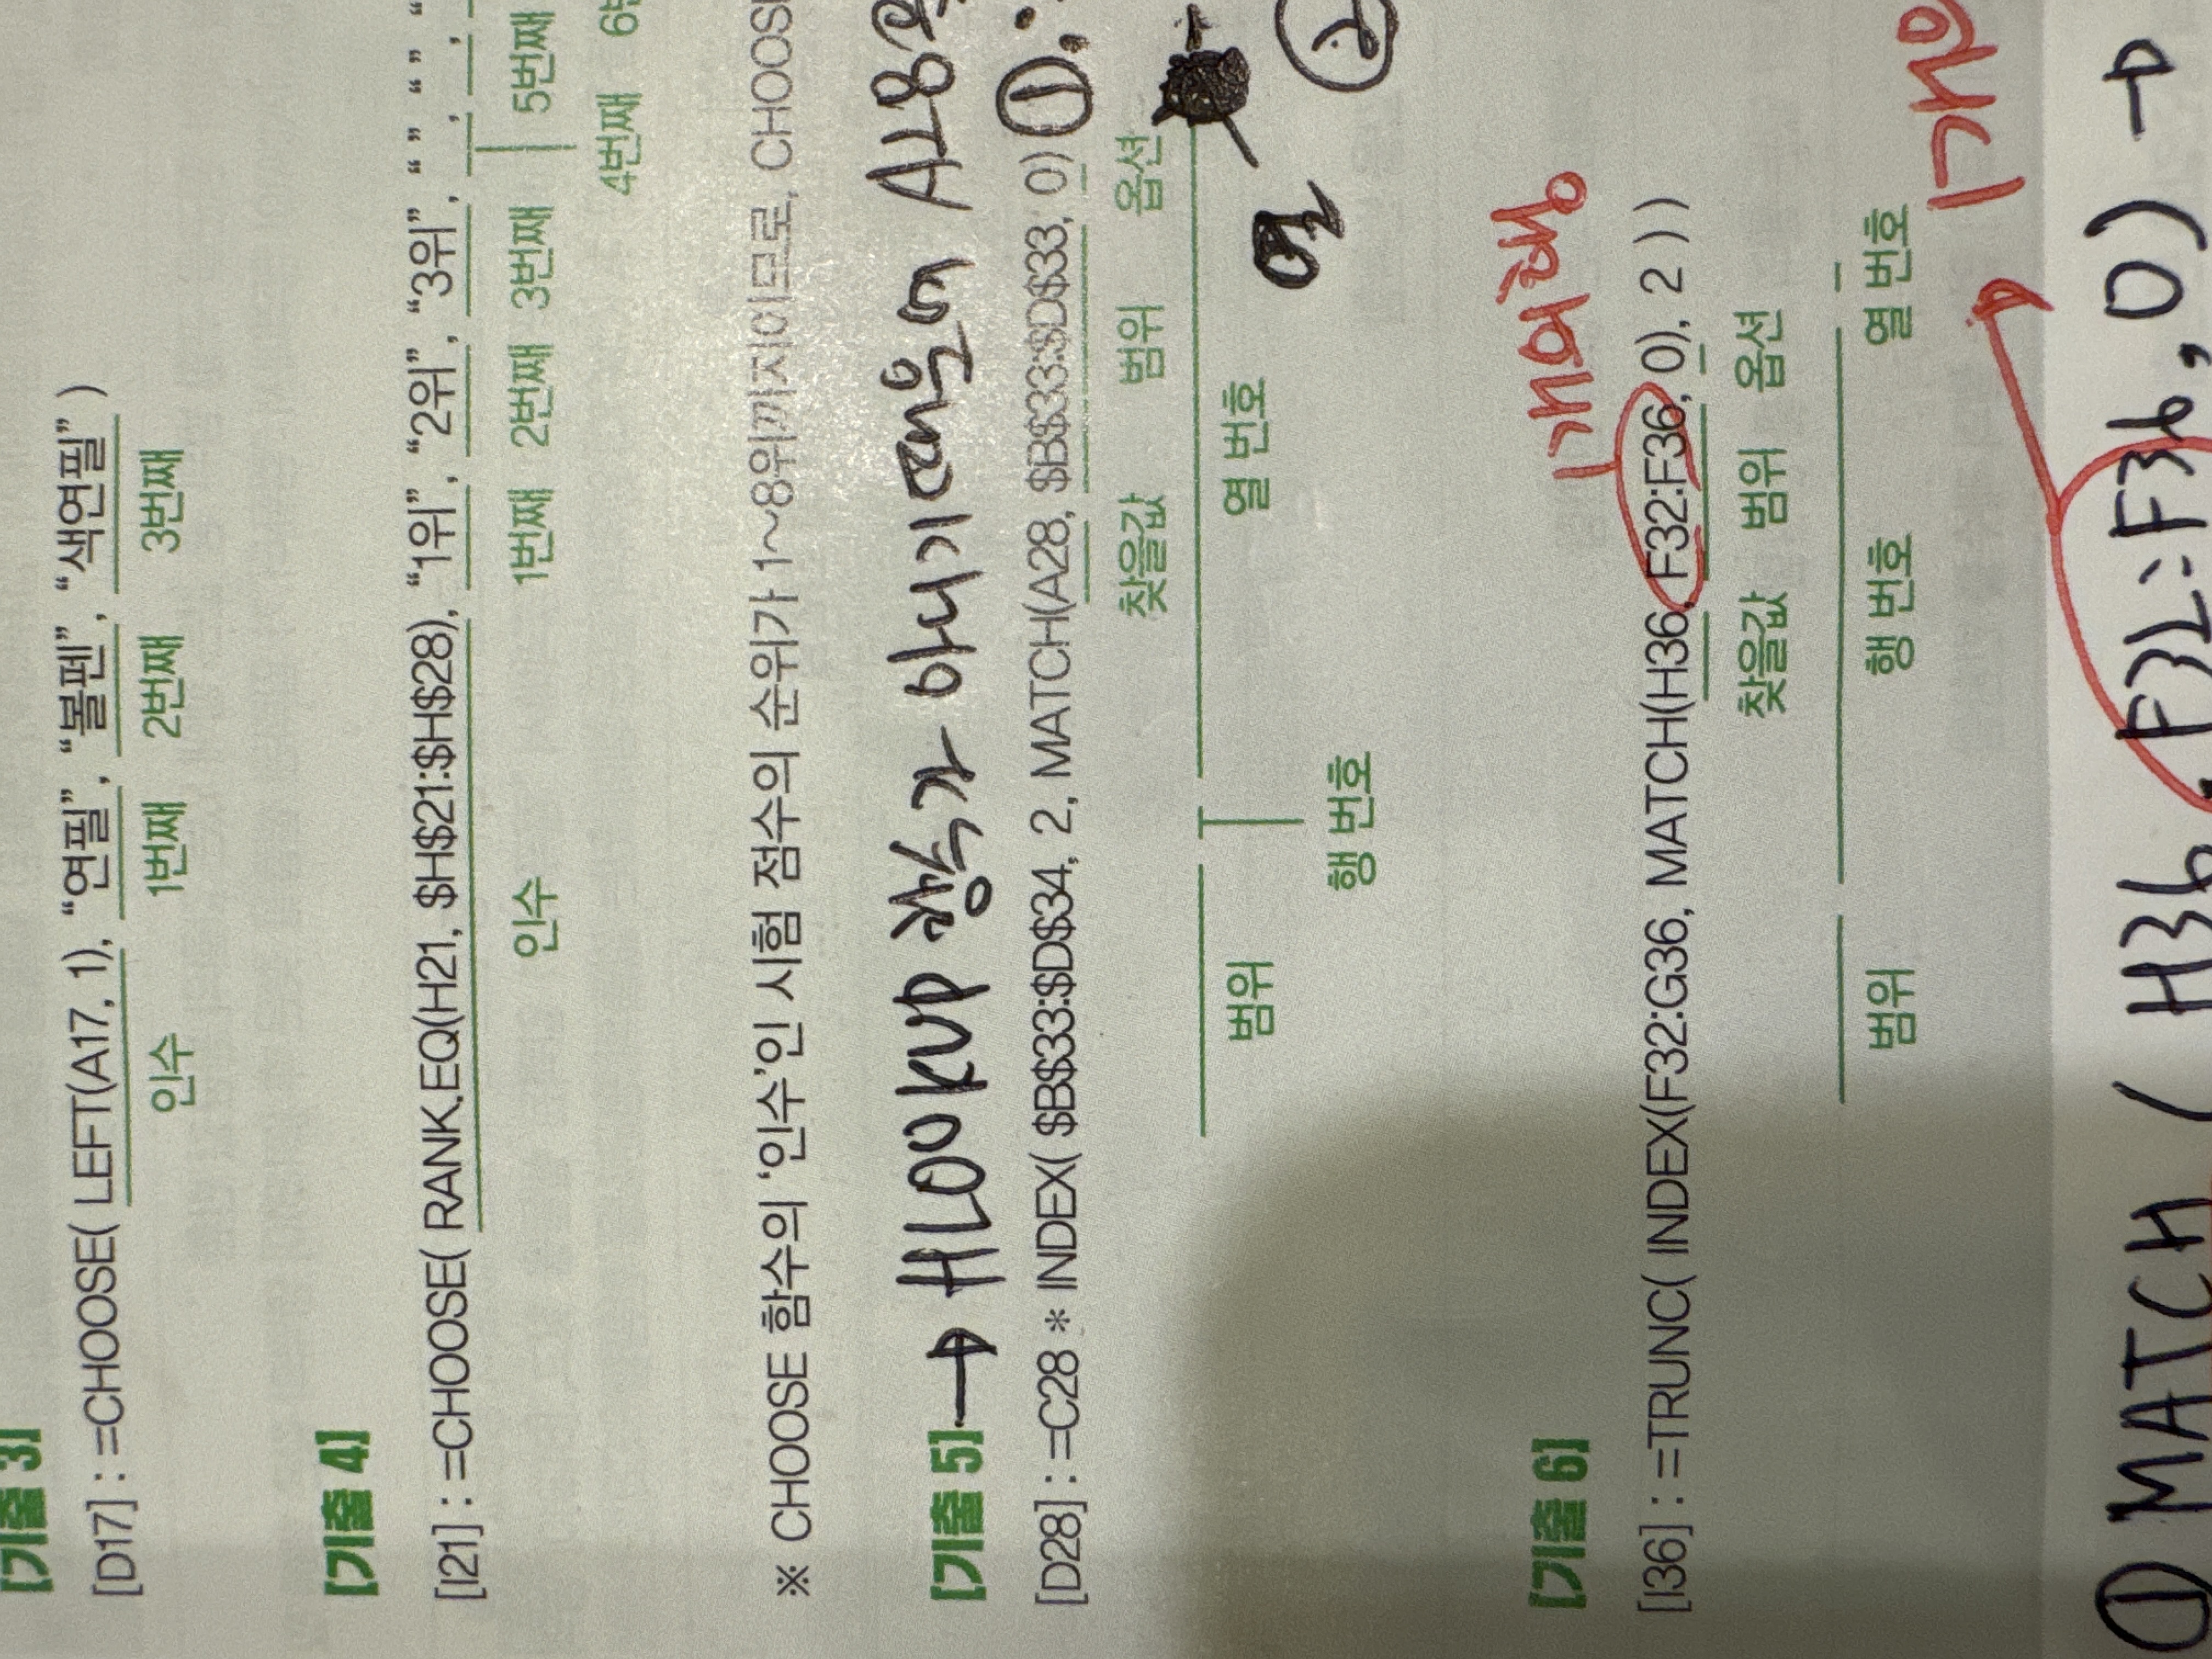 [기출 3]
[D17] : =CHOOSE( LEFT(A17, 1), “연필”, “볼펜”, “색연필” )
인수 1번째 2번째 3번째
[기출 4]
[I21] : =CHOOSE( RANK.EQ(H21, $H$21:$H$28), “1위”, “2위”, “3위”, “ ”, “ ”, “
인수 1번째 2번째 3번째 5번째
4번째
※ CHOOSE 함수의 ‘인수’인 시험 점수의 순위가 1~8위까지이므로, CHOOS
[기출 5] → HLOOKUP 함수가 아니기때문에 사용
[D28] : =C28 * INDEX( $B$33:$D$34, 2, MATCH(A28, $B$33:$D$33, 0) ①
찾을값 범위 옵션
범위 열 번호 열
행 번호
[기출 6] 1개의행
[I36] : =TRUNC( INDEX(F32:G36, MATCH(H36, F32:F36, 0), 2 ) )
찾을값 범위 옵션
범위 행 번호 열 번호
1개
① MATCH ( H36, F32:F36, 0) →